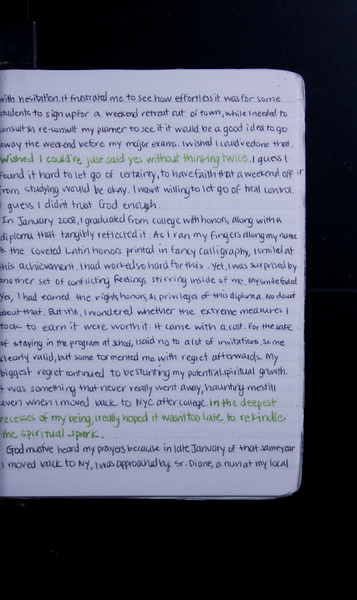 with hesitation. It frustrated me to see how effortless it was for some
students to sign up for a weekend retreat out of town, while I needed to
consult an re-consult my planner to see if it would be a good idea to go
away the weekend before my major exams. I wished I could've done that.
Wished I could've just said yes without thinking twice. I guess I
found it hard to let go of certainty, to have faith that a weekend off
from studying would be okay. I wasn't willing to let go of total control.
I guess I didn't trust God enough.
In January 2008, I graduated from college with honors, along with a
diploma that tangibly reflected it. As I ran my fingers along my name
the coveted Latin honors printed in fancy calligraphy, I smiled at
this achievement. I had worked so hard for this. Yet, I was surprised by
another set of conflicting feelings stirring inside of me. My smile faded
Yes, I had earned the rights, honors, & privileges of this diploma. No doubt
about that. But still, I wondered whether the extreme measures I
took to earn it were worth it. It came with a cost. For the sake
of staying in the program at school, I said no to a lot of invitations, some
clearly valid, but some tormented me with regret afterwards. My
biggest regret continued to be stunting my potential spiritual growth.
It was something that never really went away, haunting me still
even when I moved back to NYC after college. In the deepest
recesses of my being, I really hoped it wasn't too late to rekindle
the spiritual spark.
God must've heard my prayers because in late January of that same year
I moved back to NY, I was approached by Sr. Diane, a nun at my local